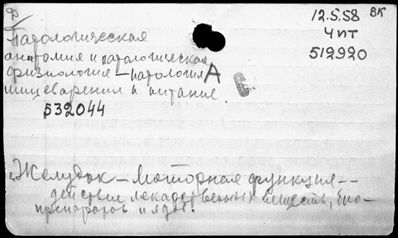 Ф/
12.5.58 ВК
Патологическая
Ч пт
анатомия и патологическая
512920
физиология – патология А
пищеварения и питание.
532044
Желудок – Моторная функция --
действие лекарственных веществ, био-
препаратов и ядов.